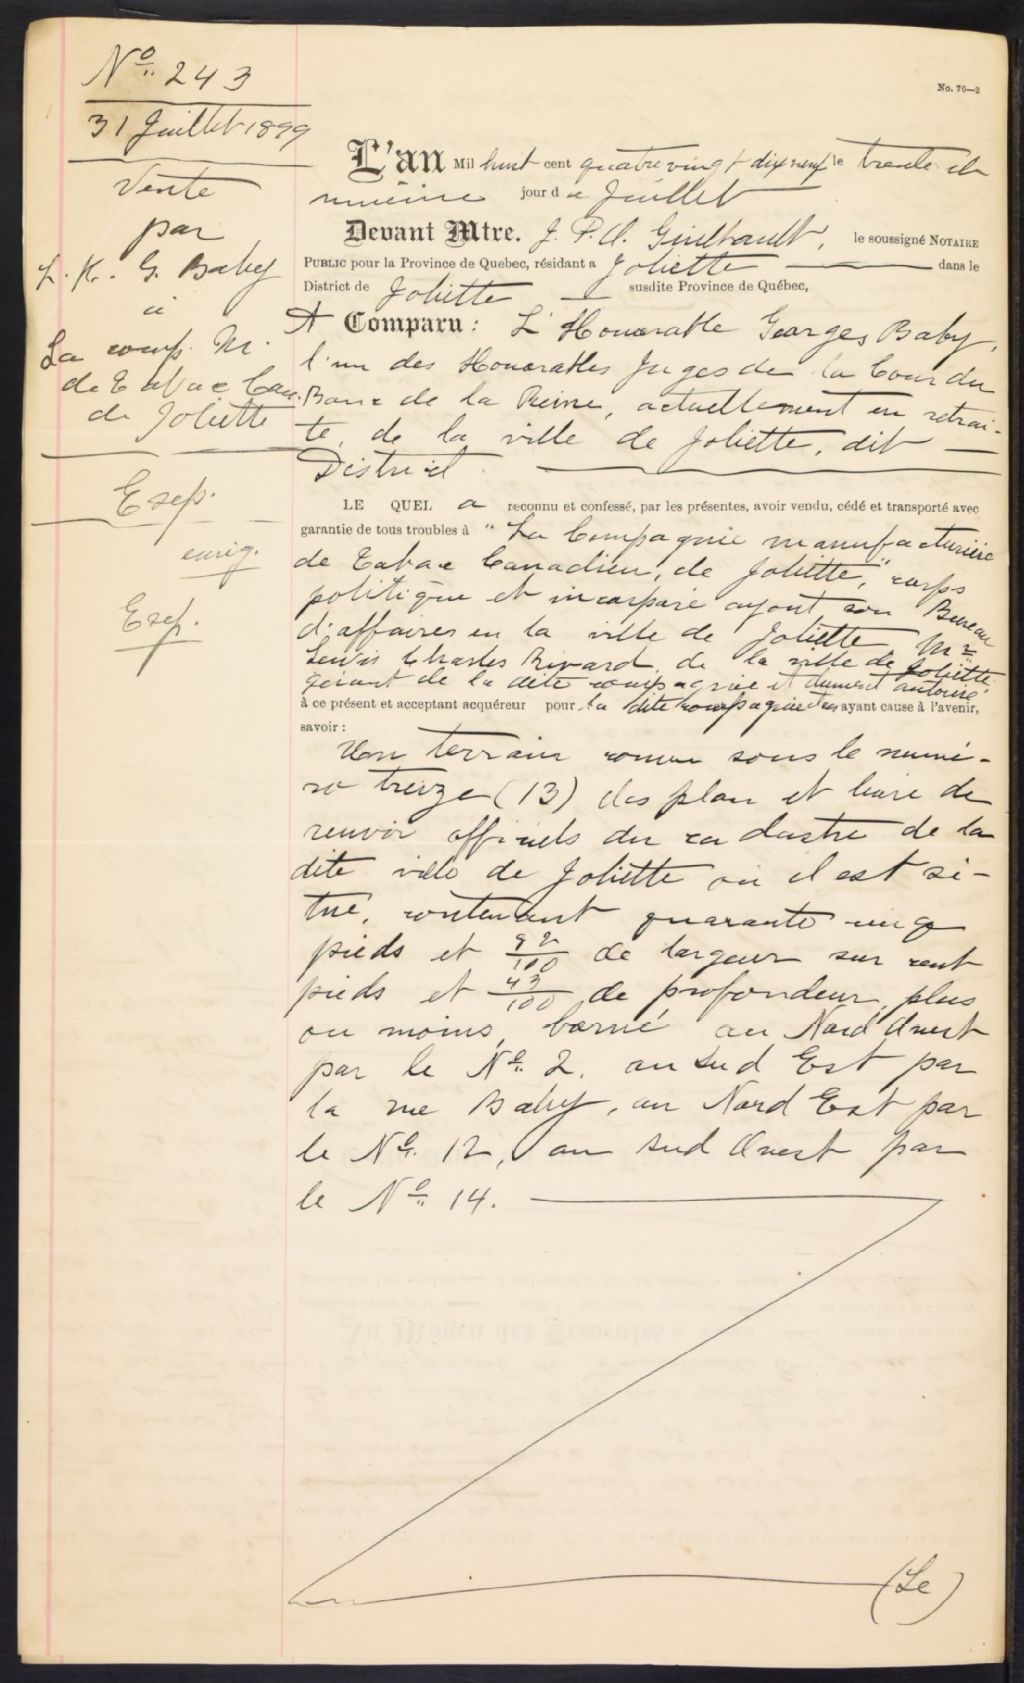 No. 243
31 Juillet 1899
Vente
par
L. H. G. Baby
à
La comp. M.
de Tabac Can.
de Joliette
Exep.
enrig.
Exep.
No. 70—2
L'an Mil huit cent quatre vingt dix neuf le trente et
unième jour de Juillet
Devant Mtre. J. P. O. Guilbault, le soussigné NOTAIRE
PUBLIC pour la Province de Quebec, résidant a Joliette dans le
District de Joliette susdite Province de Québec,
A Comparu: L'Honorable Georges Baby,
l'un des Honorables Juges de la Cour du
Banc de la Reine, actuellement en retrai-
te, de la ville de Joliette, dit
District.
LE QUEL a reconnu et confessé, par les présentes, avoir vendu, cédé et transporté avec
garantie de tous troubles à "La Compagnie manufacturière
de Tabac Canadien, de Joliette," corps
politique et incorporé ayant son Bureau
d'affaires en la ville de Joliette, Mr
Lewis Charles Rivard, de la ville de Joliette
gérant de la dite compagnie et dument autorisé
à ce présent et acceptant acquéreur pour la dite compagnie ses ayant cause à l'avenir,
savoir:
Un terrain connu sous le numé-
ro treize (13) des plan et livre de
renvoi officiels du cadastre de la
dite ville de Joliette ou il est si-
tué, contenant quarante cinq
pieds et 92/100 de largeur sur cent
pieds et 43/100 de profondeur, plus
ou moins, borné au Nord Ouest
par le No. 2, au Sud Est par
la rue Baby, au Nord Est par
le No. 12, au Sud Ouest par
le No. 14.
(Le)